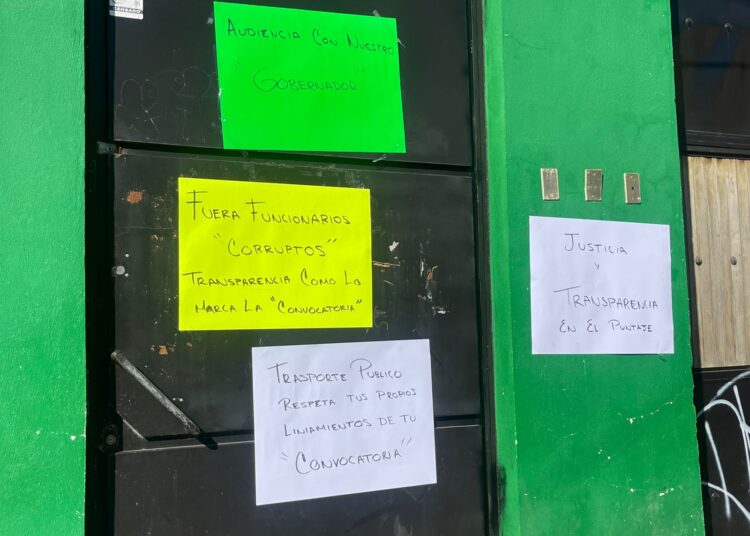 CENSADO
AUDIENCIA CON NUESTRO
"GOBERNADOR"
FUERA FUNCIONARIOS
"CORRUPTOS"
TRANSPARENCIA COMO LO
MARCA LA "CONVOCATORIA"
TRASPORTE PUBLICO
RESPETA TUS PROPIOS
LINIAMIENTOS DE TU
"CONVOCATORIA"
JUSTICIA
Y
TRANSPARENCIA
EN EL PUNTAJE